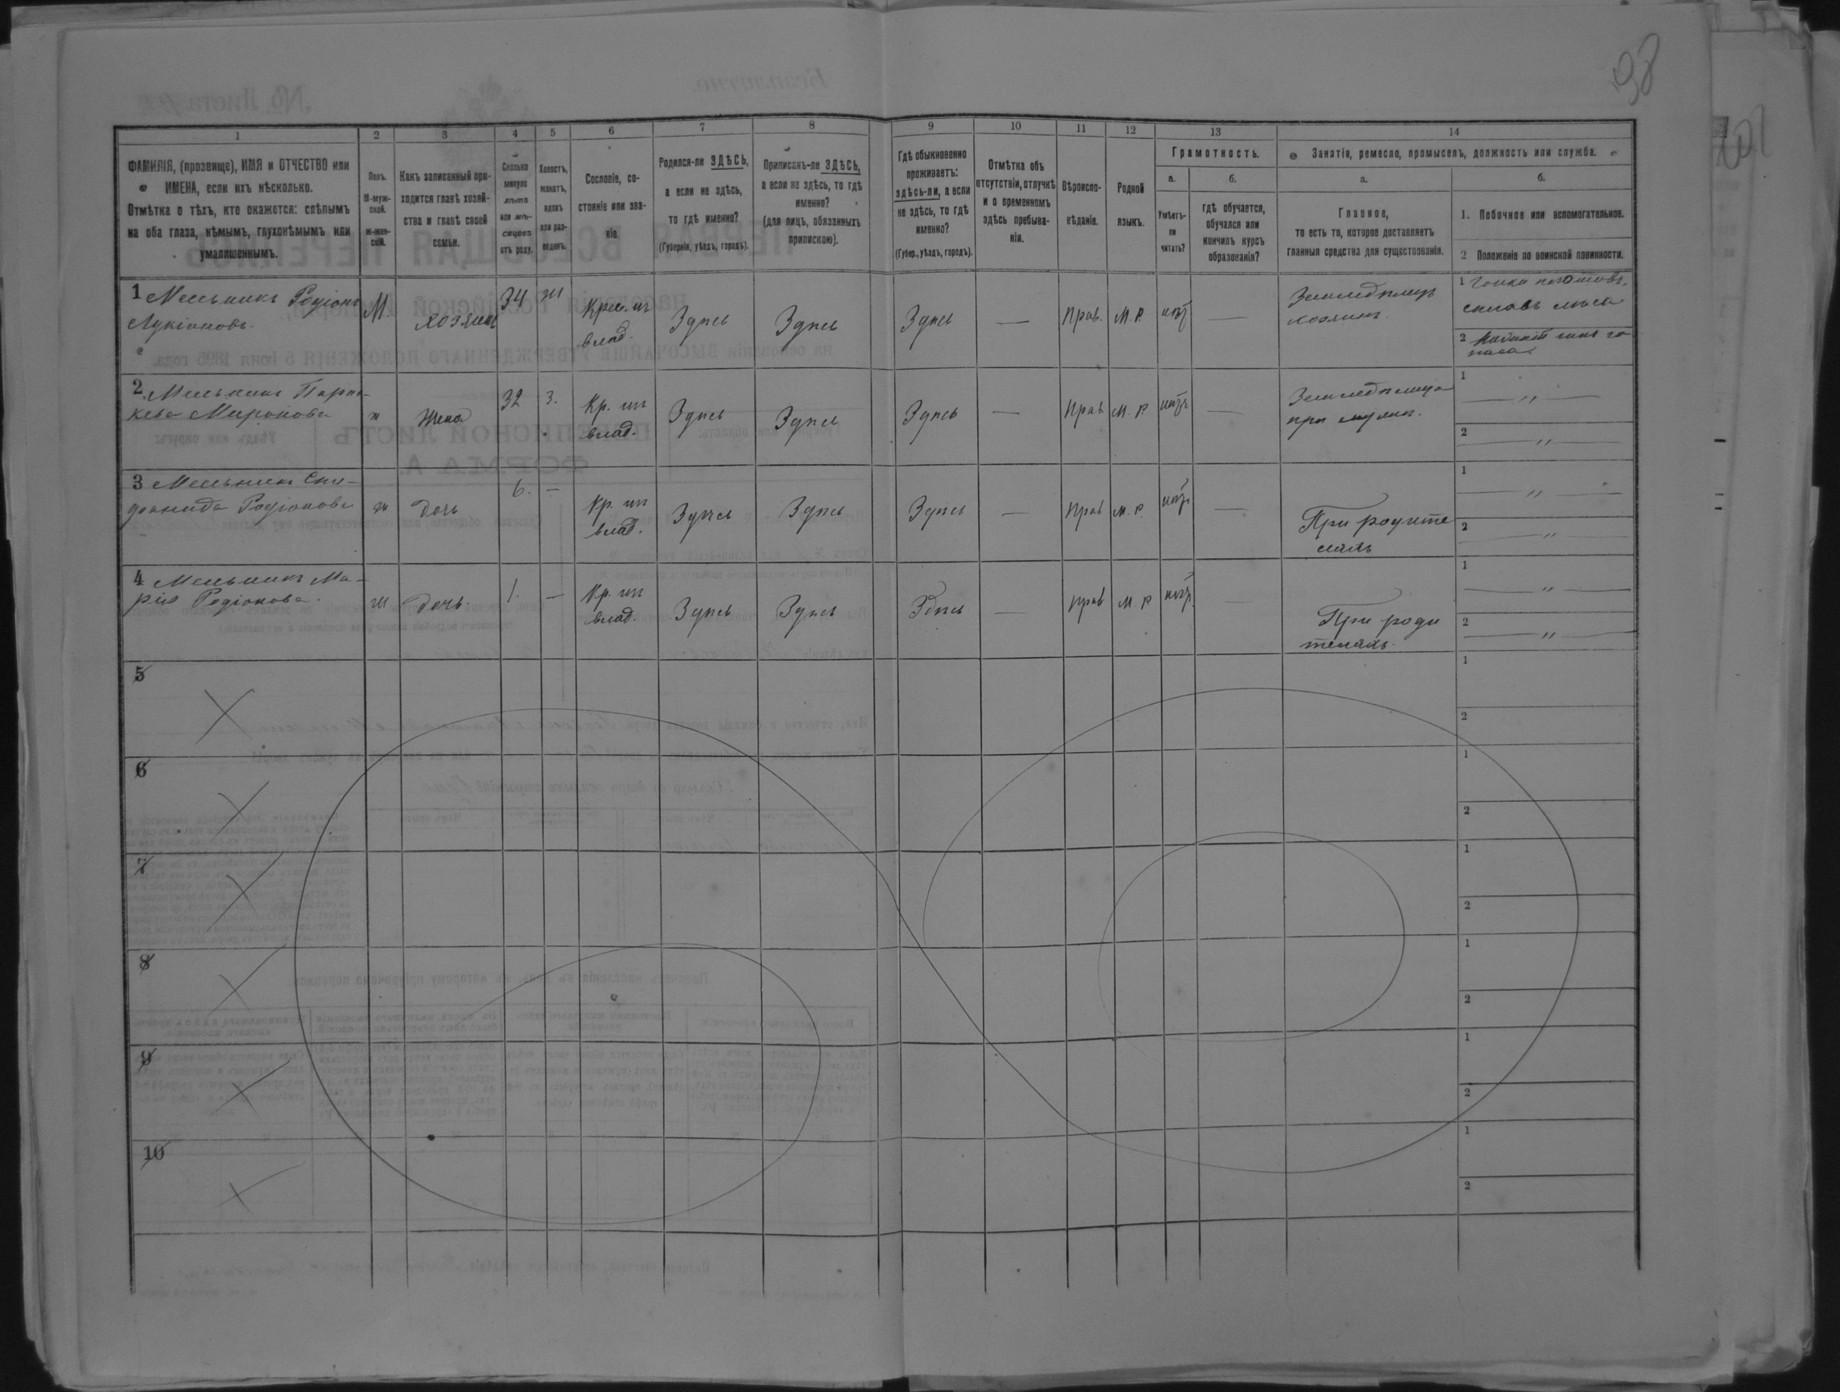 98
1 2 3 4 5 6 7 8 9 10 11 12 13 14
ФАМИЛІЯ, (прозвище), ИМЯ и ОТЧЕСТВО или
ИМЕНА, если ихъ нѣсколько.
Отмѣтка о тѣхъ, кто окажется: слѣпымъ
на оба глаза, нѣмымъ, глухонѣмымъ или
умалишеннымъ.
Полъ.
М-муж-
ской.
Ж-жен-
скій.
Какъ записанный при-
ходится главѣ хозяй-
ства и главѣ своей
семьи.
Сколько
минуло
лѣтъ
или мѣ-
сяцевъ
отъ роду.
Холостъ,
женатъ,
вдовъ
или раз-
веденъ.
Сословіе, со-
стояніе или зва-
ніе.
Родился-ли ЗДѢСЬ,
а если не здѣсь,
то гдѣ именно?
(Губернія, уѣздъ, городъ).
Приписанъ-ли ЗДѢСЬ,
а если не здѣсь, то гдѣ
именно?
(для лицъ, обязанныхъ
припискою).
Гдѣ обыкновенно
проживаетъ:
здѣсь-ли, а если
не здѣсь, то гдѣ
именно?
(Губер., уѣздъ, городъ).
Отмѣтка объ
отсутствіи, отлучкѣ
и о временномъ
здѣсь пребыва-
ніи.
Вѣроиспо-
вѣданіе.
Родной
языкъ.
Грамотность.
а.
Умѣетъ-
ли
читать?
б.
гдѣ обучается,
обучался или
кончилъ курсъ
образованія?
Занятіе, ремесло, промыселъ, должность или служба.
а.
Главное,
то есть то, которое доставляетъ
главныя средства для существованія.
б.
1. Побочное или вспомогательное.
2 Положеніе по воинской повинности.
1 Мельникъ Родіонъ
Лукіановъ.
М хозяинъ 34 ж Крес. изъ
влад. Здѣсь Здѣсь Здѣсь — Прав. М. Р. нѣт — Земледѣлецъ
хозяинъ.
1
сплавъ лѣса
2
2 Мельникъ Парас-
кева Миронова
ж жена 32 з. Кр. изъ
влад. Здѣсь Здѣсь Здѣсь — Прав М. Р. нѣтъ —
при мужѣ.
1 — „ —
2 — „ —
3 Мельникъ
Родіонова
ж дочь 6. — Кр. изъ
влад. Здѣсь Здѣсь Здѣсь — Прав М. Р. нѣт —
При родите
ляхъ
1 — „ —
2 — „ —
4 Мельникъ Ма-
рія Родіонова.
ж дочь. 1. — Кр. изъ
влад. Здѣсь Здѣсь Здѣсь — Прав М. Р нѣт. —
При роди
теляхъ.
1 — „ —
2 — „ —
5
1
2
6
1
2
7
1
2
8
1
2
9
1
2
10
1
2